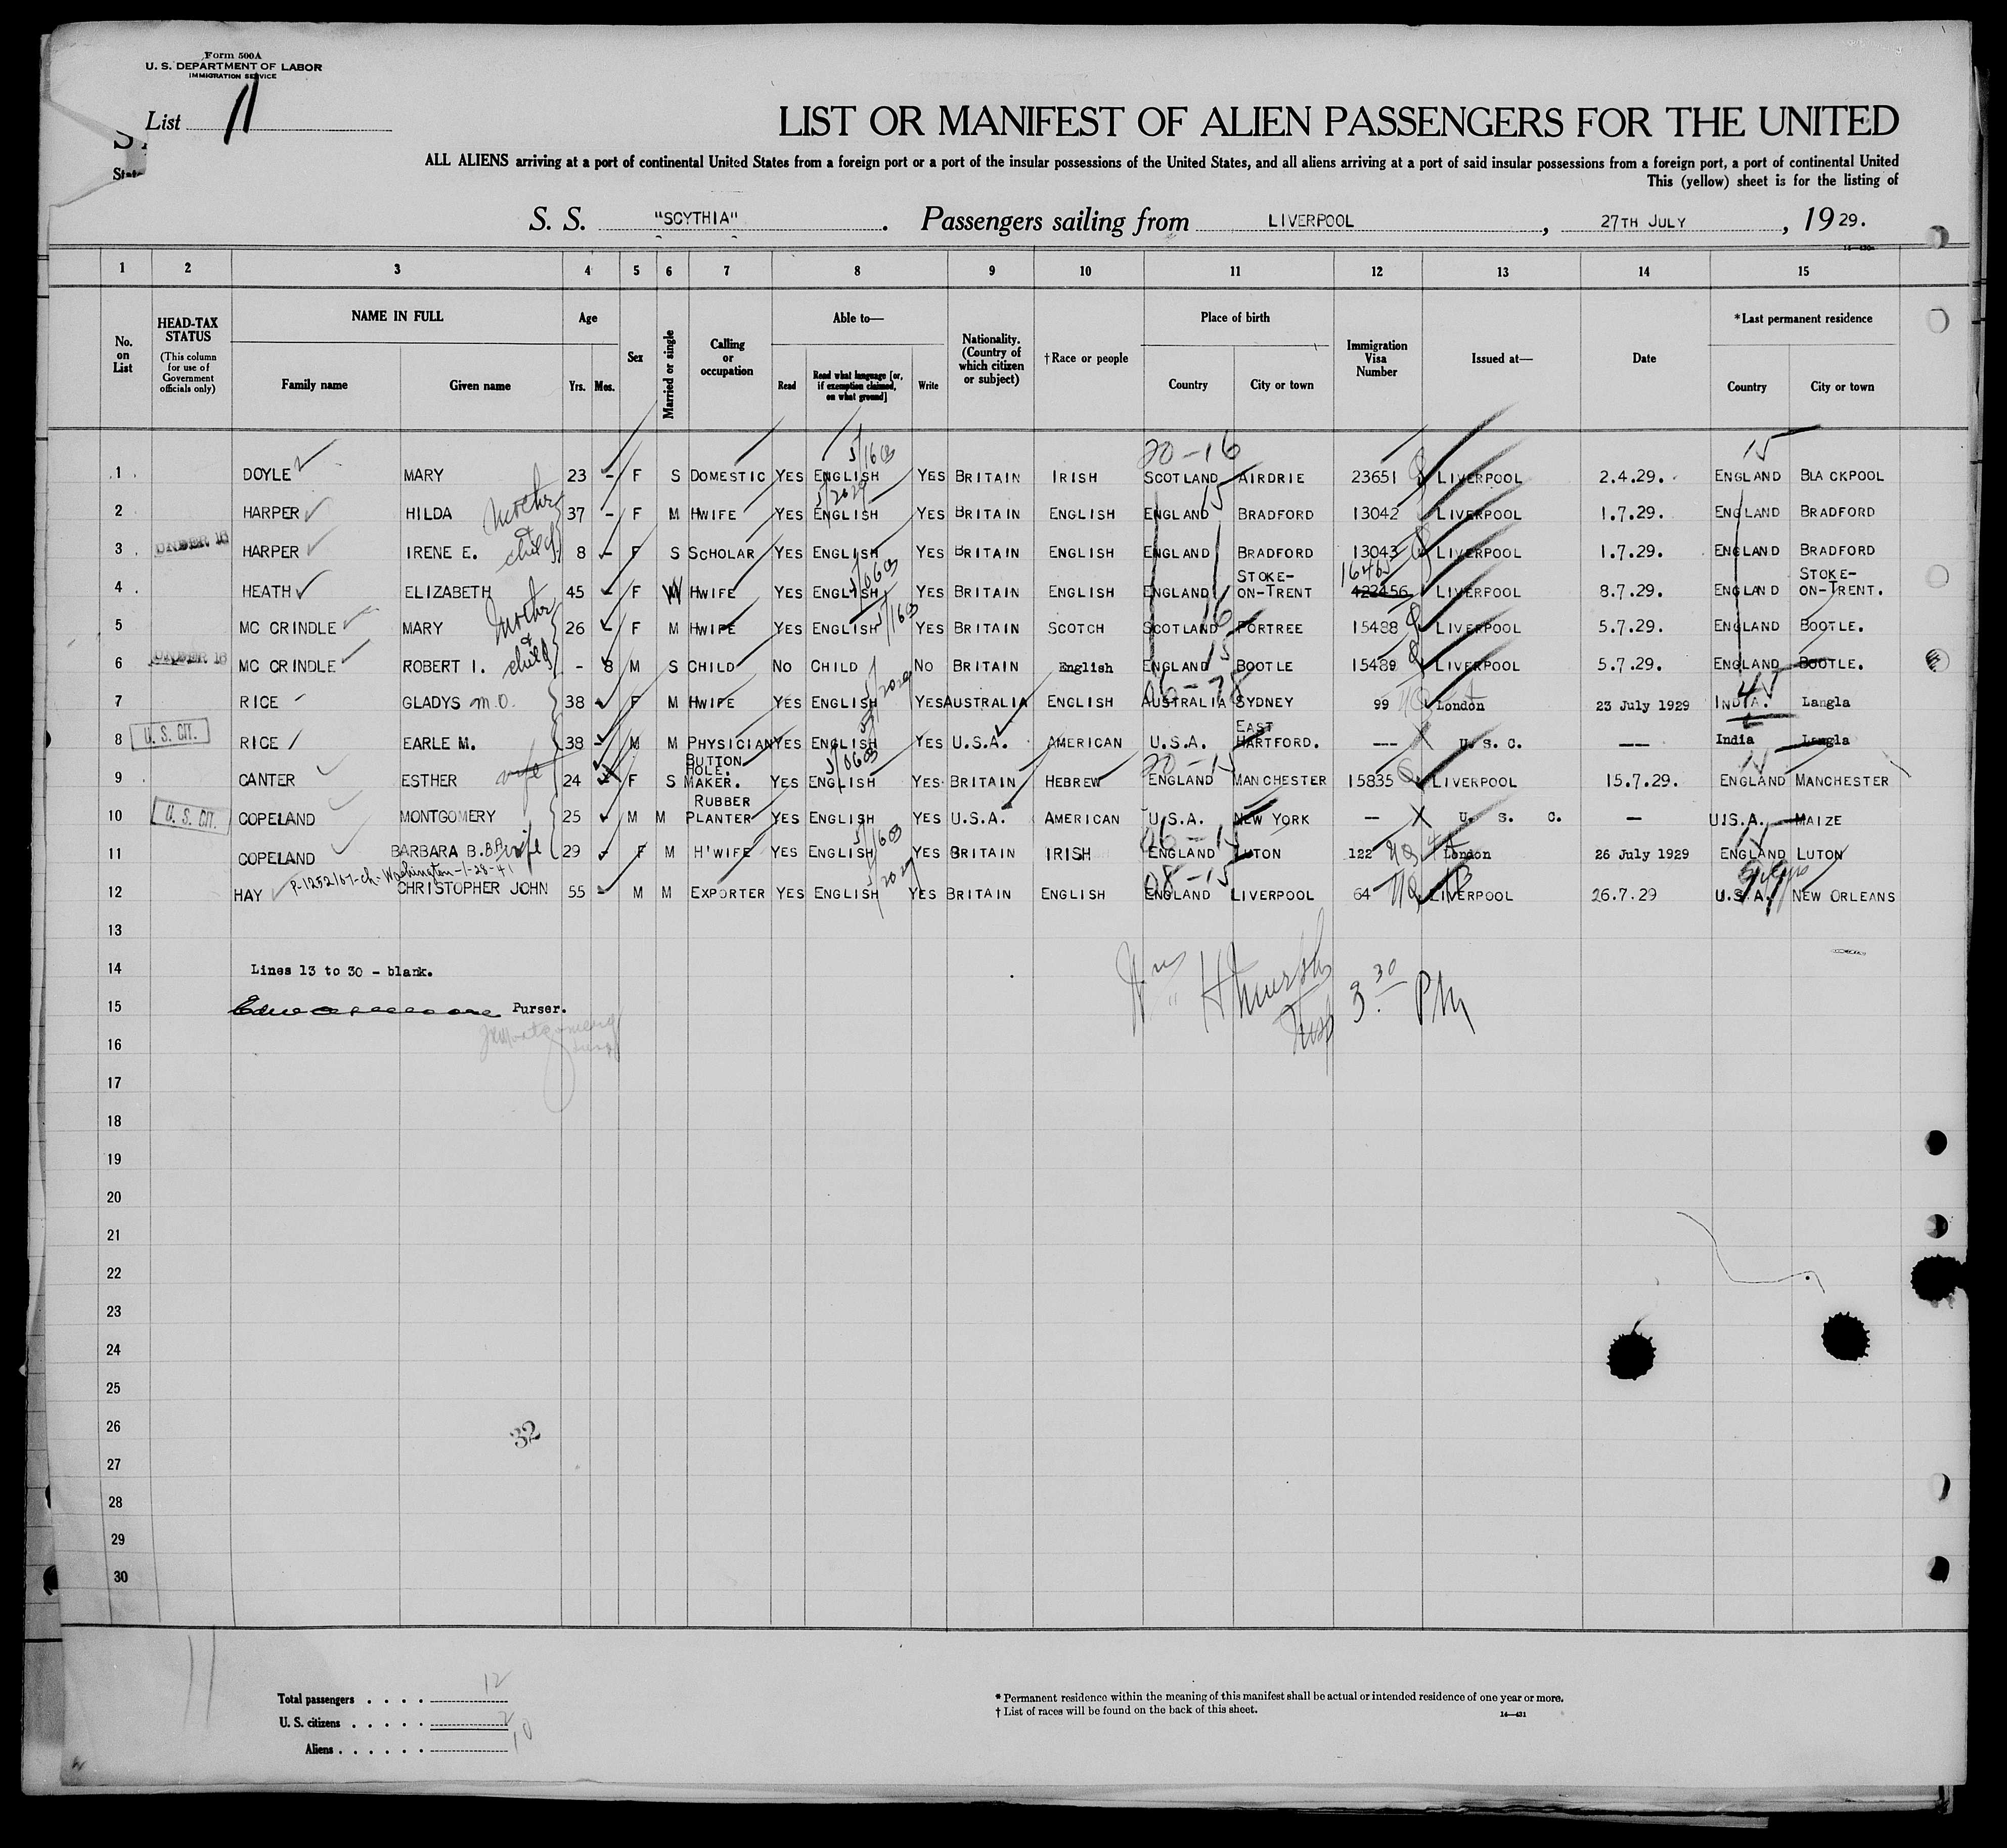 Form 500A
U. S. DEPARTMENT OF LABOR
IMMIGRATION SERVICE
List 11
LIST OR MANIFEST OF ALIEN PASSENGERS FOR THE UNITED
ALL ALIENS arriving at a port of continental United States from a foreign port or a port of the insular possessions of the United States, and all aliens arriving at a port of said insular possessions from a foreign port, a port of continental United
This (yellow) sheet is for the listing of
S. S. "SCYTHIA". Passengers sailing from LIVERPOOL, 27TH JULY, 1929.
1 2 3 4 5 6 7 8 9 10 11 12 13 14 15
No. on List HEAD-TAX STATUS (This column for use of Government officials only) NAME IN FULL Family name Given name Age Yrs. Mos. Sex Married or single Calling or occupation Able to— Read Read what language [or, if exemption claimed, on what ground] Write Nationality. (Country of which citizen or subject) †Race or people Place of birth Country City or town Immigration Visa Number Issued at— Date *Last permanent residence Country City or town
20-16 15
1 DOYLE MARY 23 - F S DOMESTIC YES ENGLISH YES BRITAIN IRISH SCOTLAND AIRDRIE 23651 LIVERPOOL 2.4.29. ENGLAND BLACKPOOL
2 HARPER HILDA Mother 37 - F M HWIFE YES ENGLISH YES BRITAIN ENGLISH ENGLAND BRADFORD 13042 LIVERPOOL 1.7.29. ENGLAND BRADFORD
3 UNDER 16 HARPER IRENE E. + child 8 - F S SCHOLAR YES ENGLISH YES BRITAIN ENGLISH ENGLAND BRADFORD 13043 LIVERPOOL 1.7.29. ENGLAND BRADFORD
4 HEATH ELIZABETH 45 - F W HWIFE YES ENGLISH YES BRITAIN ENGLISH ENGLAND STOKE-ON-TRENT LIVERPOOL 8.7.29. ENGLAND STOKE-ON-TRENT.
5 MC CRINDLE MARY Mother 26 - F M HWIFE YES ENGLISH YES BRITAIN SCOTCH SCOTLAND PORTREE 15488 LIVERPOOL 5.7.29. ENGLAND BOOTLE.
6 UNDER 16 MC CRINDLE ROBERT I. + child - 8 M S CHILD NO CHILD NO BRITAIN English ENGLAND BOOTLE 15489 LIVERPOOL 5.7.29. ENGLAND BOOTLE.
7 RICE GLADYS M.O. 38 F M HWIFE YES ENGLISH YES AUSTRALIA ENGLISH AUSTRALIA SYDNEY 99 London 23 July 1929 INDIA. Langla
8 U. S. CIT. RICE EARLE M. 38 - M M PHYSICIAN YES ENGLISH YES U.S.A. AMERICAN U.S.A. EAST HARTFORD. --- U. S. C. --- India Langla
9 CANTER ESTHER wife 24 F S BUTTON HOLE. MAKER. YES ENGLISH YES BRITAIN HEBREW ENGLAND MANCHESTER 15835 LIVERPOOL 15.7.29. ENGLAND MANCHESTER
10 U. S. CIT. COPELAND MONTGOMERY 25 M M RUBBER PLANTER YES ENGLISH YES U.S.A. AMERICAN U.S.A. NEW YORK — U. S. C. — U.S.A. MAIZE
11 COPELAND BARBARA B. wife 29 F M H'WIFE YES ENGLISH YES BRITAIN IRISH ENGLAND LUTON 122 London 26 July 1929 ENGLAND LUTON
P-1252167-ch-Washington-1-28-41
12 HAY CHRISTOPHER JOHN 55 M M EXPORTER YES ENGLISH YES BRITAIN ENGLISH ENGLAND LIVERPOOL 64 LIVERPOOL 26.7.29 U.S.A. NEW ORLEANS
13
14 Lines 13 to 30 - blank.
3 30 PM
15 Purser.
16
17
18
19
20
21
22
23
24
25
26
32
27
28
29
30
11
Total passengers . . . . 12
U. S. citizens . . . . . 2
Aliens . . . . . . 10
* Permanent residence within the meaning of this manifest shall be actual or intended residence of one year or more.
† List of races will be found on the back of this sheet.
14—431